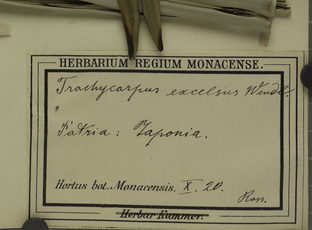 HERBARIUM REGIUM MONACENSE.
Trachycarpus excelsus Wendl.
Patria: Japonia.
Hortus bot. Monacensis. X. 20.
Ross.
Herbar Kummer.